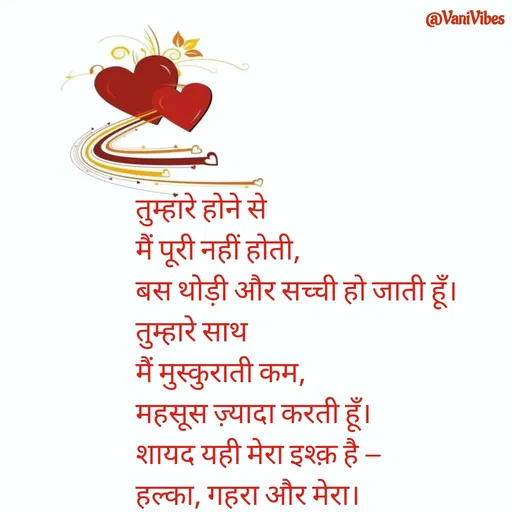 @VaniVibes
तुम्हारे होने से
मैं पूरी नहीं होती,
बस थोड़ी और सच्ची हो जाती हूँ।
तुम्हारे साथ
मैं मुस्कुराती कम,
महसूस ज़्यादा करती हूँ।
शायद यही मेरा इश्क़ है –
हल्का, गहरा और मेरा।